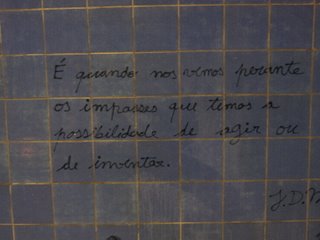 É quando nos vemos perante
os impasses que temos a
possibilidade de agir ou
de inventar.
J.D.